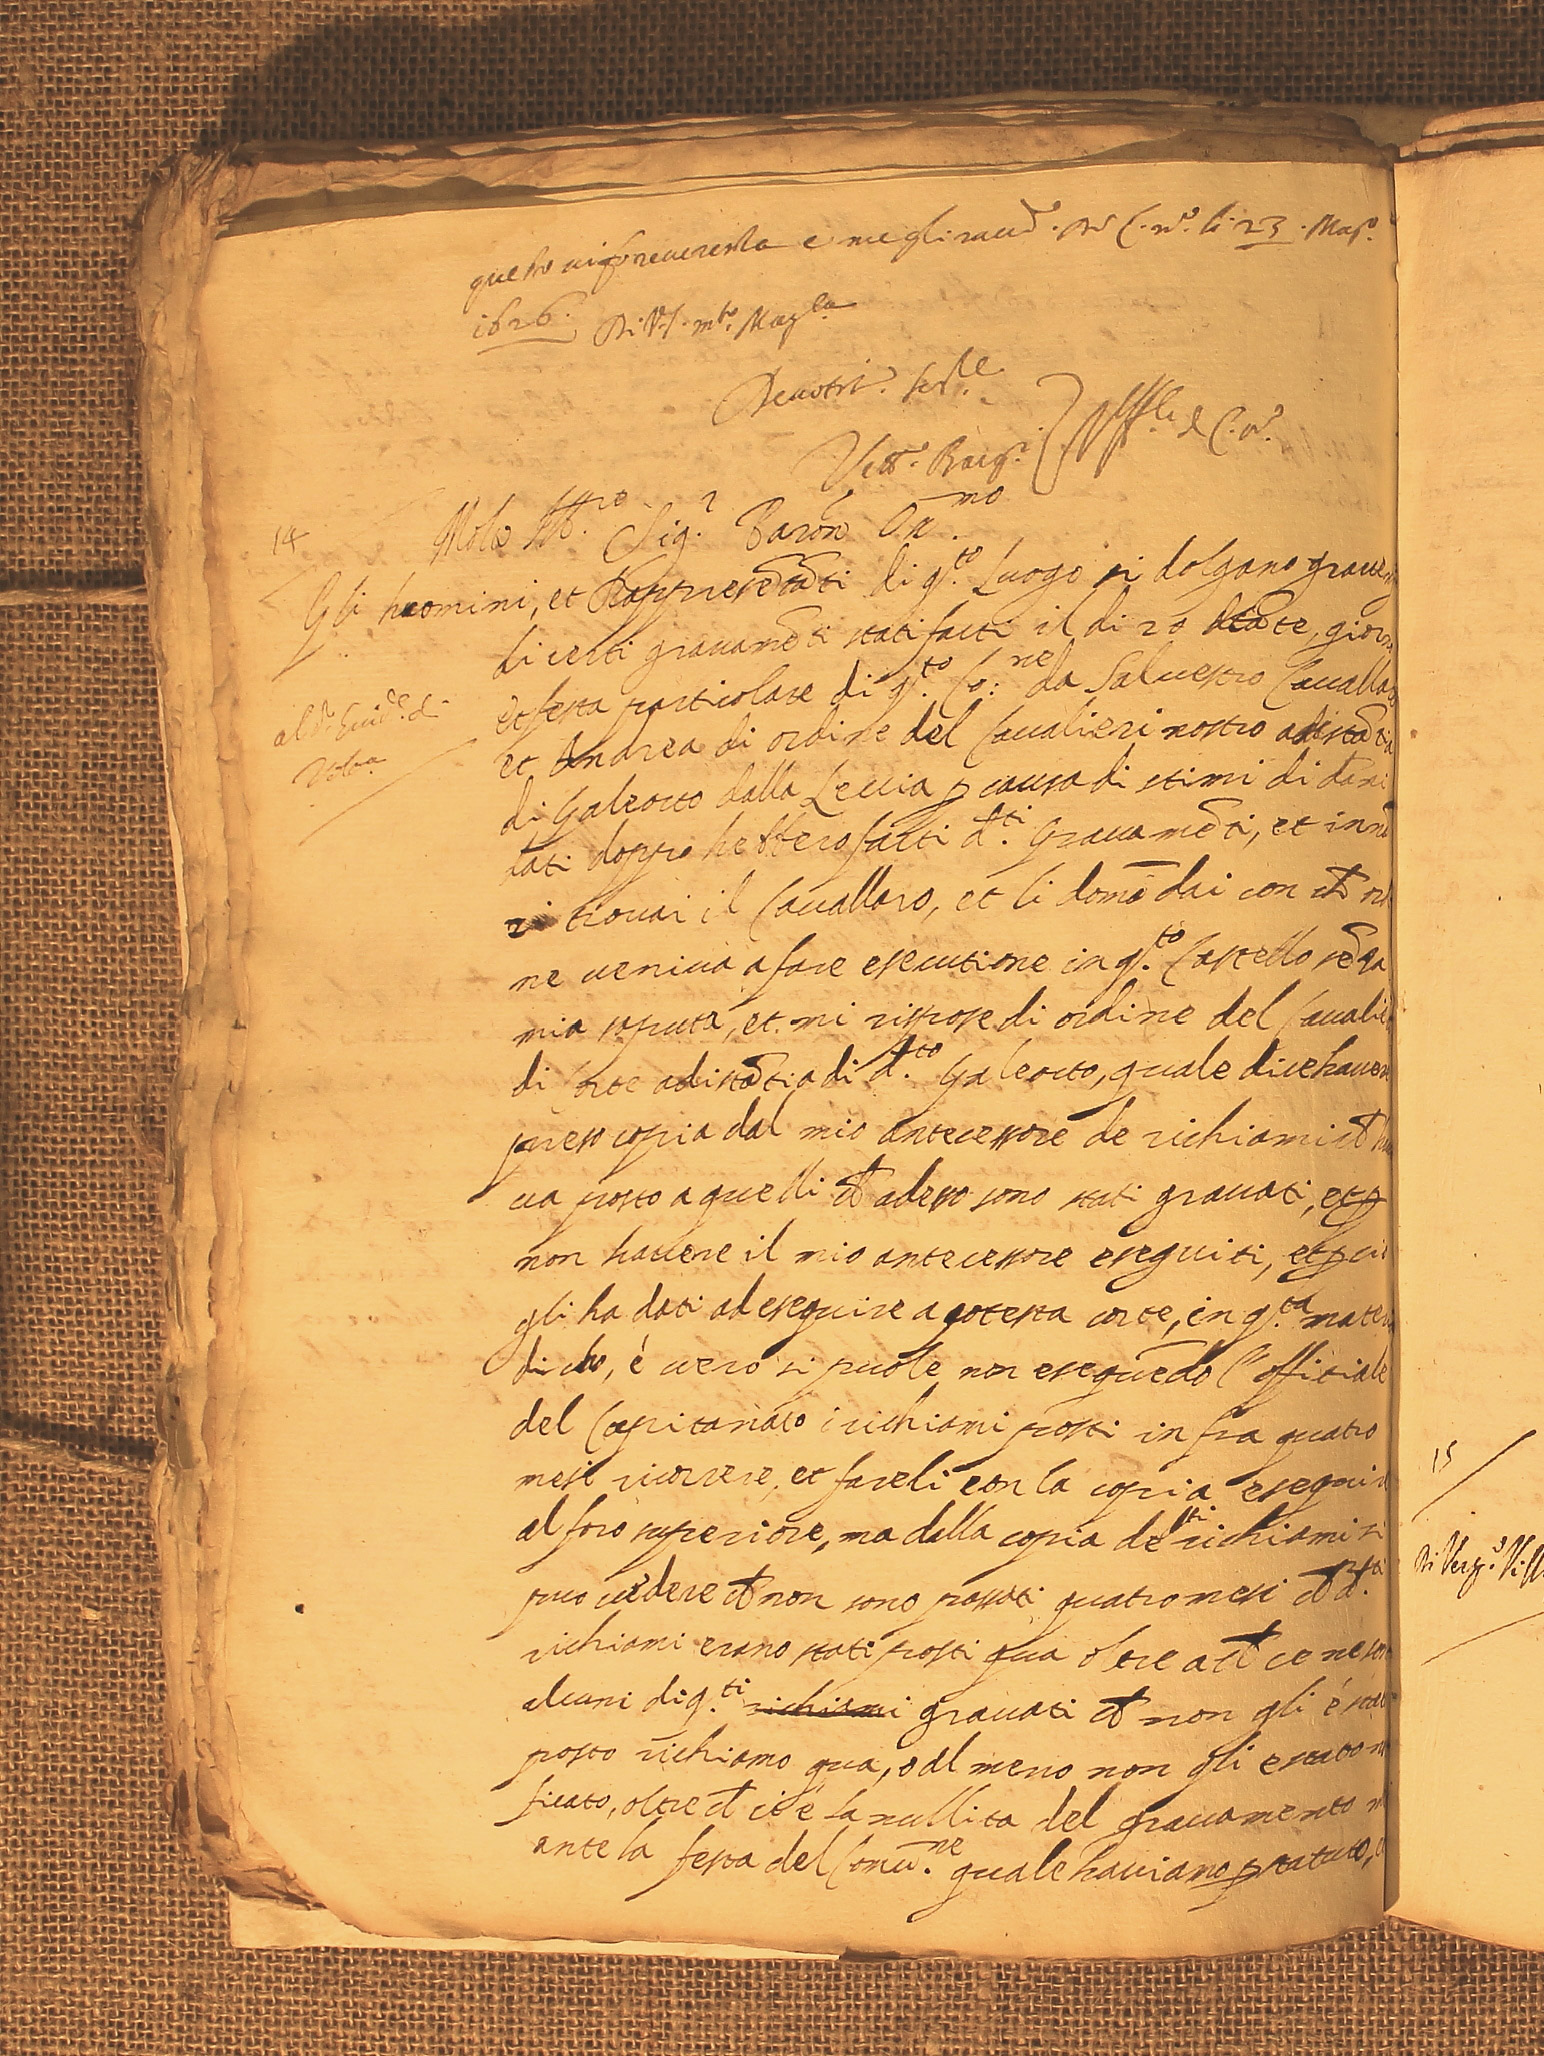 questo mi fo reverenza e me gli racc.do Di C. n.o li 23 Mag.o
1626. Di V.S. m.to Mag.ca
Devotiss.o Ser.le
Vett.o
14
Molto Ill.re Sig.r Baron Oss.mo
Gli huomini, et Rappresētāti di q.to Luogo si dolgano
di certi gravamēti stati fatti il di 20 stāte, giorno
et festa particolare di q.to Co:ne da Salvestro Cavallaro
et Andrea di ordine del Cavalieri nostro adistātia
di Galeotto dalla Leccia p causa di stimi di dāni
dati doppo hebbero fatti d.ti Gravamēti, et
ritrovai il Cavallaro, et li domādai con che
ne veniva a fare esecutione in q.to Castello sēza
mia saputa, et mi rispose di ordine del Cavalie
di Corte adistātia di d.to Galeotto, quale dice haver
preso copia dal mio antecessore de richiami che
va posto a quelli che adesso sono stati gravati, et p
non havere il mio antecessore eseguiti, et p
gli ha dati ad eseguire a cotesta corte, in q.ta
dico, é vero si puole non eseguēdo l'offitiale
del Capitanato i richiami posti in fra quatro
mesi ricorrere, et fareli con la copia eseguir
al foro superiore, ma dalla copia de d.ti richiami si
puo vedere che non sono passati quatro mesi che d.ti
richiami erano stati posti qua oltre a che ce ne son
alcuni di q.ti richiami gravati che non gli é stato
posto richiamo qua, o al meno non gli e stato
ficato, oltre che ci é la nullita del gravamento
ante la festa del Comu.ne quale haviamo p statuto,
Volta
15
Di Verg.o